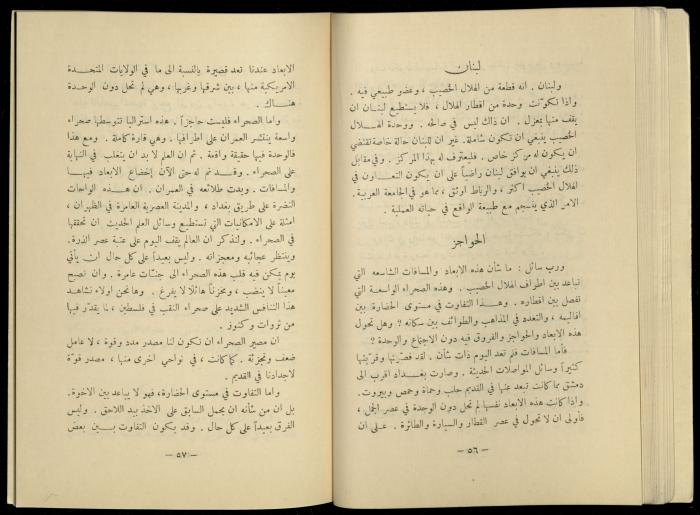 لبنان
ولبنان . انه قطعة من الهلال الخصيب ، وعضو طبيعي فيه .
واذا تكونت وحدة من اقطار الهلال ، فلا يستطيع لبنان ان
يقف منها بمعزل . ان ذلك ليس في صالحه . ووحدة الهلال
الخصيب ينبغي ان تكون شاملة. غير ان للبنان حالة خاصة تقتضي
ان يكون له مركز خاص . فليعترف له بهذا المركز . وفي مقابل
ذلك ينبغي ان يوافق لبنان راضياً على ان يكون التعاون في
الهلال الخصيب اكثر ، والرباط اوثق ، مما هو في الجامعة العربية.
الامر الذي ينسجم مع طبيعة الواقع في حياته العملية .
الحواجز
ورب سائل : ما شأن هذه الابعاد والمسافات الشاسعه التي
تباعد بين اطراف الهلال الخصيب . وهذه الصحراء الواسعة التي
تفصل بين اقطاره . وهذا التفاوت في مستوى الحضارة بين
اقاليمه ، والتعدد في المذاهب والطوائف بين سكانه ؟ وهل تحول
هذه الابعاد والحواجز والفروق فيه دون الاجتماع والوحدة ؟
فأما المسافات فلم تعد اليوم ذات شأن . لقد قصرتها وقربتها
كثيراً وسائل المواصلات الحديثة . وصارت بغداد اقرب الى
دمشق مما كانت تبعد عنها في القديم حلب وحماة وحمص وبيروت.
واذا كانت هذه الابعاد نفسها لم تحل دون الوحدة في عصر الجمل ،
فأولى ان لا تحول في عصر القطار والسيارة والطائرة . على ان
— ٥٦ —
الابعاد عندنا تعد قصيرة بالنسبة الى ما في الولايات المتحدة
الامريكية منها ، بين شرقها وغربها ، وهي لم تحل دون الوحدة
هناك .
واما الصحراء فليست حاجزاً . هذه استراليا تتوسطها صحراء
واسعة ينتشر العمران على اطرافها . وهي قارة كاملة . ومع هذا
فالوحدة فيها حقيقة واقعة . ثم ان العلم لا بد ان يتغلب في النهاية
على الصحراء . وقد تم له حتى الآن إخضاع الابعاد فيها
والمسافات . وبدت طلائعه في العمران . ان هذه الواحات
النضرة على طريق بغداد ، والمدينة العصرية العامرة في الظهران ،
امثلة على الامكانيات التي تستطيع وسائل العلم الحديث ان تحققها
في الصحراء . ولنذكر ان العالم يقف اليوم على عتبة عصر الذرة.
وينتظر عجائبه ومعجزاته . وليس بعيداً على كل حال ان يأتي
يوم يمكن فيه قلب هذه الصحراء الى جنات عامرة . وان تصبح
معيناً لا ينضب ، ومخزناً هائلًا لا يفرغ . وها نحن اولاء نشاهد
هذا التنافس الشديد على صحراء النقب في فلسطين ، لما يقدر فيها
من ثروات وكنوز .
ان مصير الصحراء ان تكون لنا مصدر مدد وقوة ، لا عامل
ضعف وتجزئة . كما كانت ، في نواحي اخرى منها ، مصدر قوة
لاجدادنا في القديم .
واما التفاوت في مستوى الحضارة، فهو لا يباعد بين الاخوة.
بل ان من شأنه ان يحمل السابق على الاخذ بيد اللاحق . وليس
الفرق بعيداً على كل حال . وقد يكون التفاوت بين بعض
— ٥٧ —